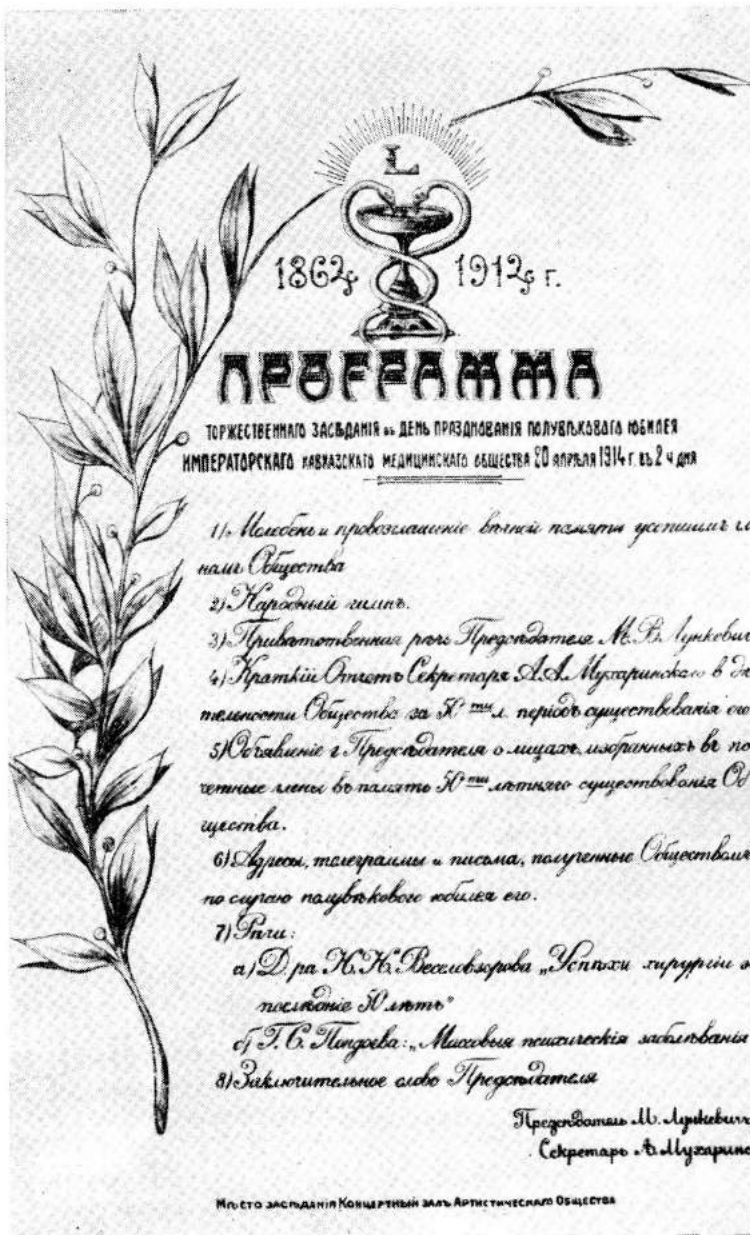 L
1862 г. 1912 г. г.
ПРОГРАММА
ТОРЖЕСТВЕННАГО ЗАСѢДАНІЯ въ ДЕНЬ ПРАЗДНОВАНІЯ ПОЛУВѢКОВОГО ЮБИЛЕЯ
ИМПЕРАТОРСКАГО КАВКАЗСКАГО МЕДИЦИНСКАГО ОБЩЕСТВА 20 АПРѢЛЯ 1914 г. въ 2 ч ДНЯ
1) Молебенъ и провозглашеніе вѣчной памяти усопшимъ
намъ Общества
2) Народный гимнъ.
3) Привѣтственная рѣчь Предсѣдателя М. В. Лункевич
4) Краткій Отчетъ Секретаря А. А. Мухаринскаго в
тельности Общества за 50 ти л. періодъ существованія его
5) Объявленіе г Предсѣдателя о лицахъ, избранныхъ въ по
четные члены въ память 50 ти лѣтняго существованія Об
щества.
6) Адресы, телеграммы и письма, полученные Обществомъ
по случаю полувѣкового юбилея его.
7) Рѣчи:
а) Д-ра Н. Н. Веселовзорова „Успѣхи хирургіи
послѣдніе 50 лѣтъ“
б) Г. С. „Массовыя психическія заболѣванія
8) Заключительное слово Предсѣдателя
Предсѣдатель М. Лункевичъ
Секретарь А. Мухаринс
Мѣсто засѣданія Концертный залъ Артистическаго Общества